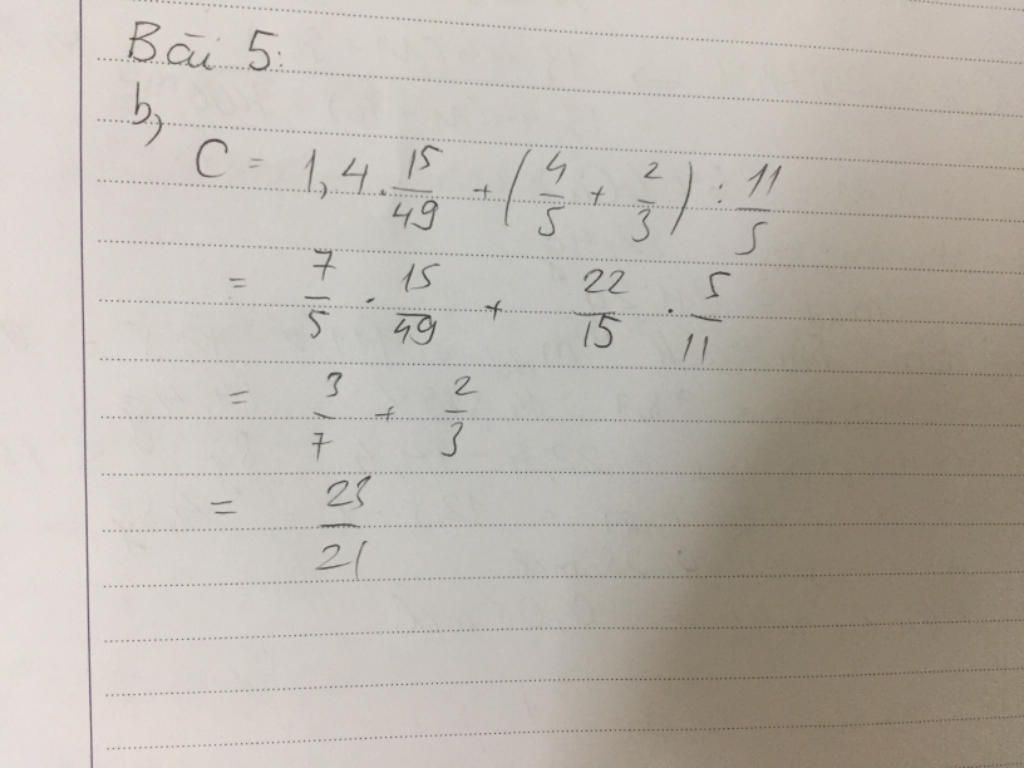 Bài 5:
b)
C = 1,4 . 15/49 + (4/5 + 2/3) : 11/5
= 7/5 . 15/49 + 22/15 . 5/11
= 3/7 + 2/3
= 23/21